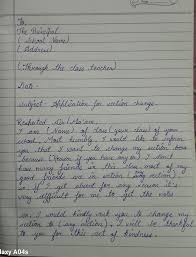 To,
The Principal
(School Name)
(Address)
(Through the class teacher)
Date -
Subject - Application for section change.
Respected Sir/Ma'am,
I am (Name) of class (your class) of your
school. Most humbly I would like to inform
you that I want to change my section
because (Reason if you have any). I don't
have many friends in this class most of my
good friends are in section (any section)
so if I get absent for any reason it's
very difficult for me to get the notes.
So, I would kindly request you to change my
section to (any section), I will be thankful
to you for this act of kindness.
laxy A04s